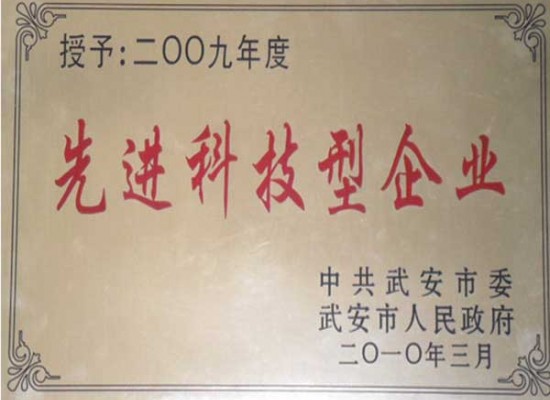 授予:二〇〇九年度
先进科技型企业
中共武安市委
武安市人民政府
二〇一〇年三月